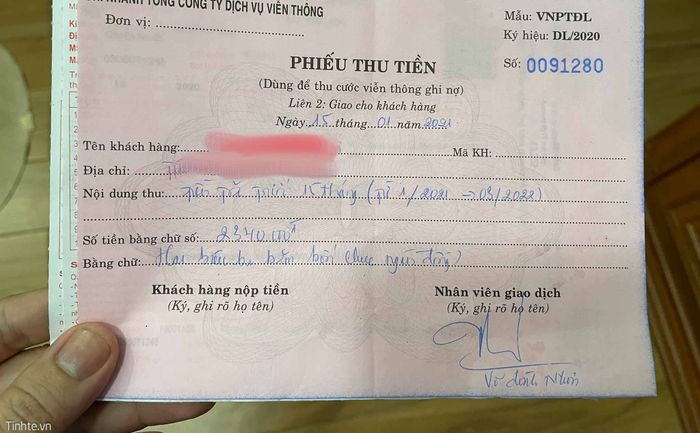 NHÁNH TỔNG CÔNG TY DỊCH VỤ VIỄN THÔNG
Đơn vị:
Mẫu: VNPTĐL
Ký hiệu: DL/2020
Số: 0091280
PHIẾU THU TIỀN
(Dùng để thu cước viễn thông ghi nợ)
Liên 2: Giao cho khách hàng
Ngày 15 tháng 01 năm 2021
Tên khách hàng:
Mã KH:
Địa chỉ:
Nội dung thu: trả 15 tháng (từ 1/2021 → 03/2022)
Số tiền bằng chữ số: 2340.000đ
Bằng chữ: Hai triệu ba trăm bốn chục nghìn đồng
Khách hàng nộp tiền
(Ký, ghi rõ họ tên)
Nhân viên giao dịch
(Ký, ghi rõ họ tên)
Tinhte.vn